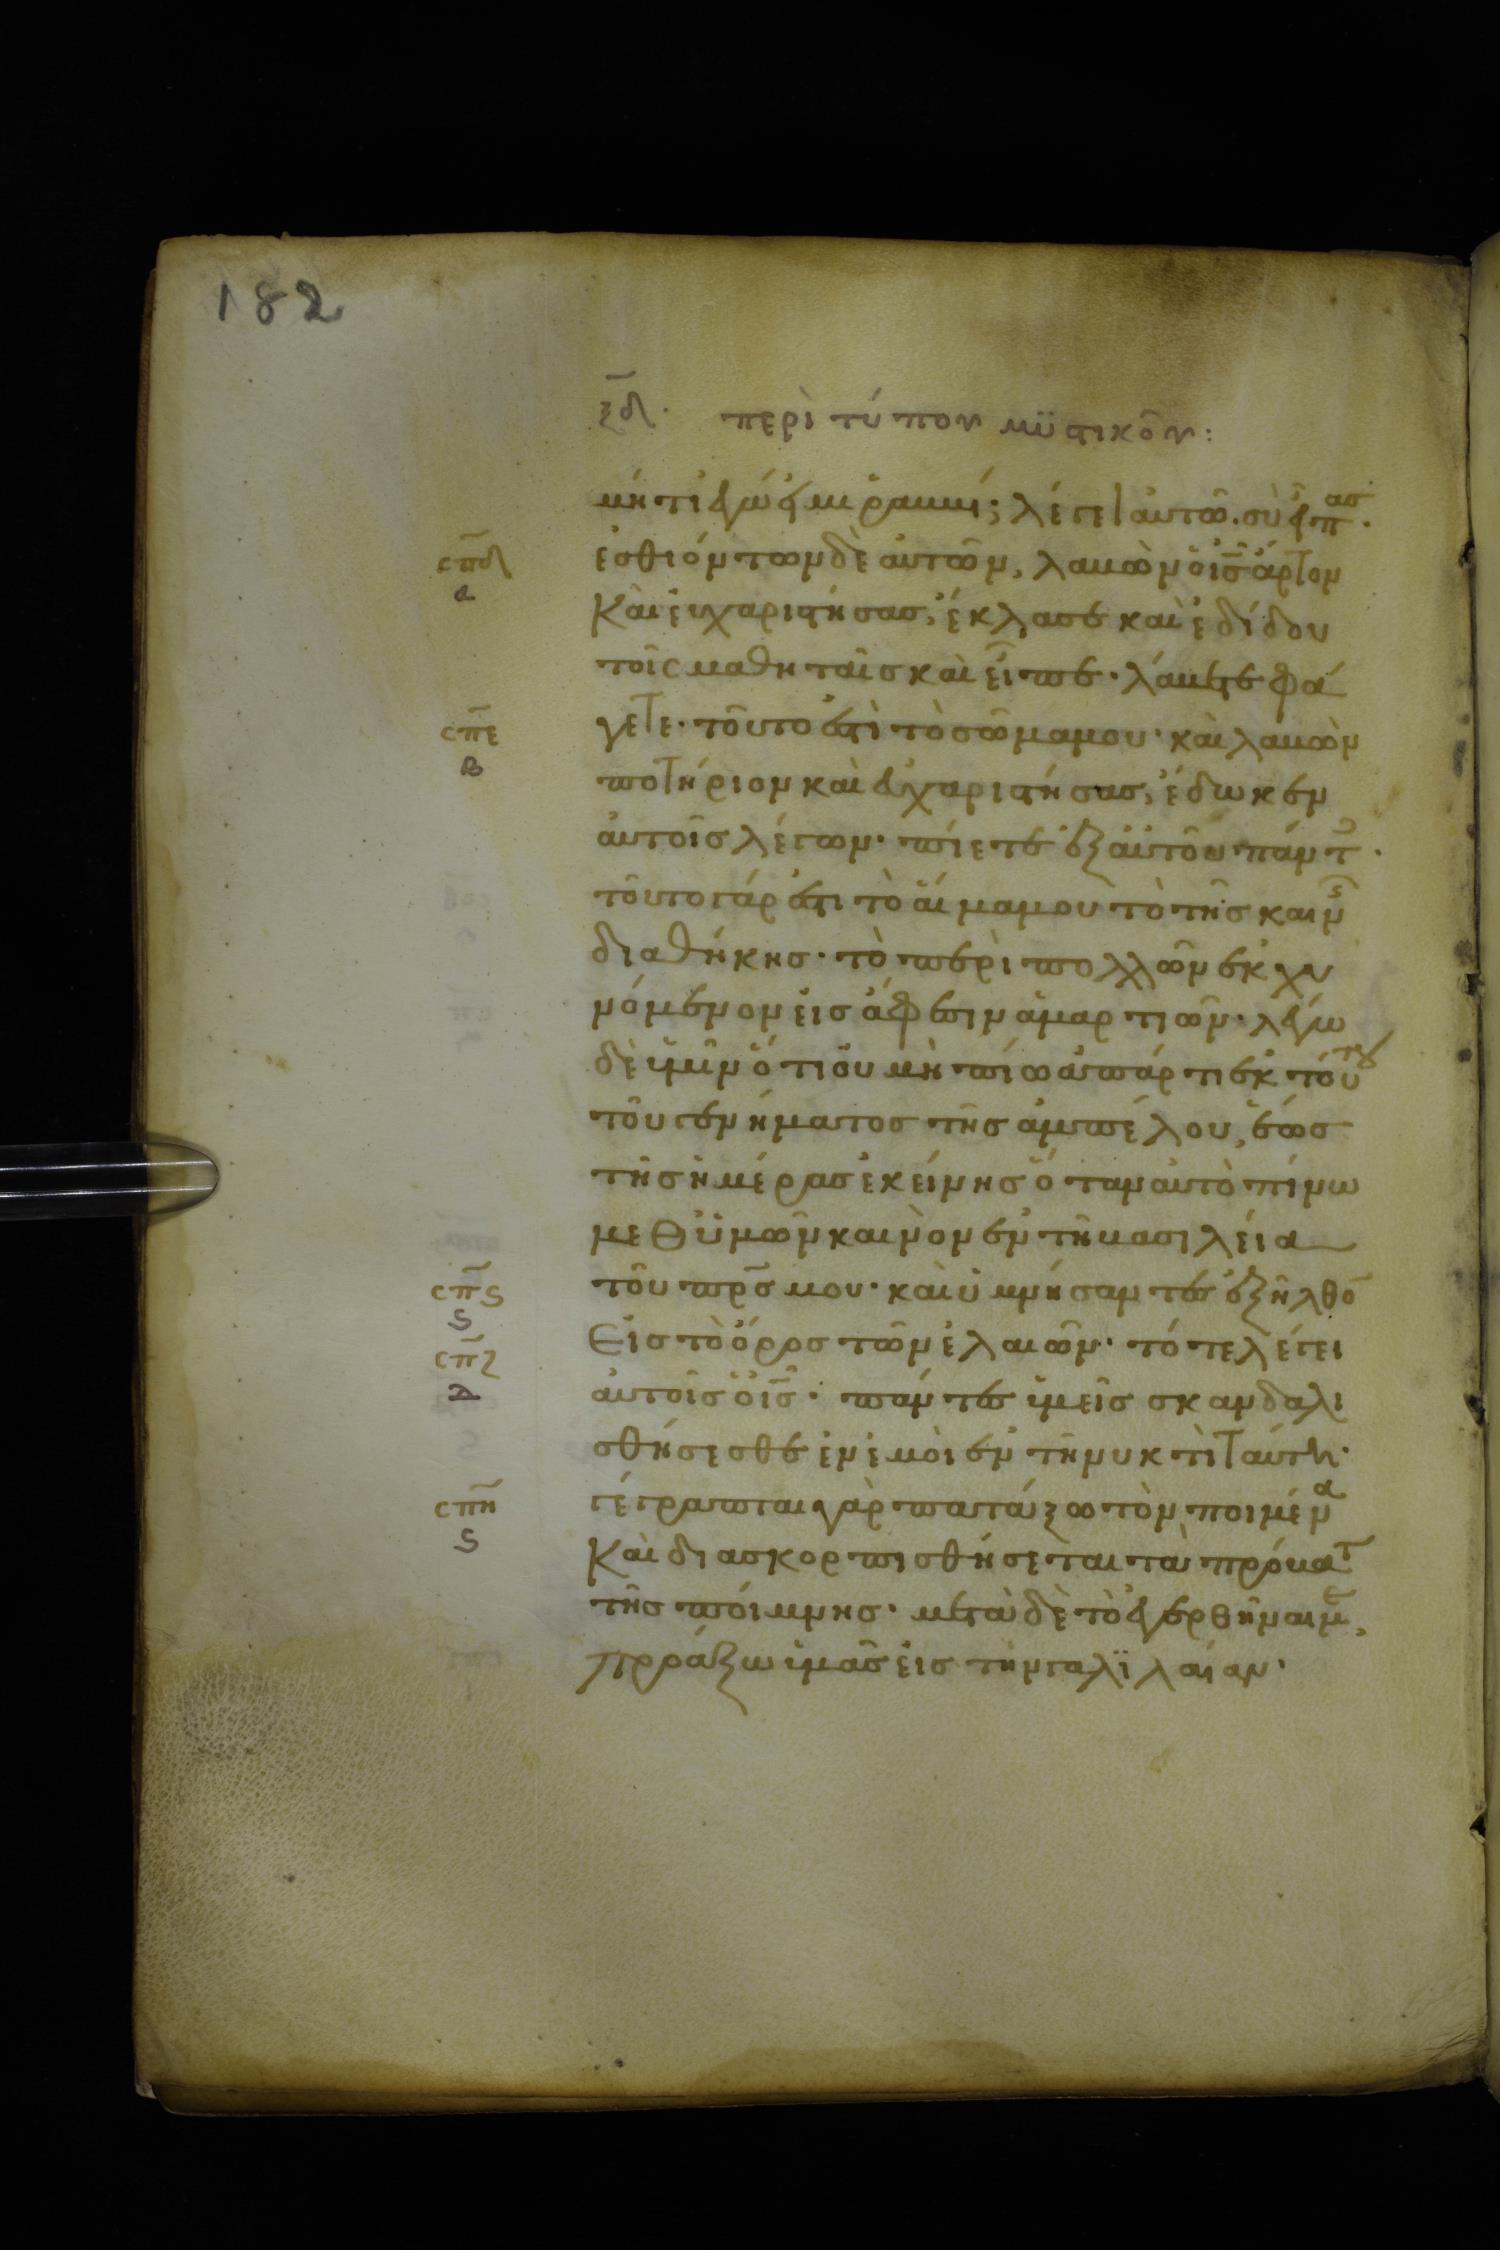 182
ξδ. περὶ τύπου μϋστικοῦ:
μήτι ἐγώ εἰμι ῥαββί; λέγει αὐτῶ. σὺ εἶπας.
σπδ ἐσθιόντων δὲ αὐτῶν, λαβὼν ὁ ις ἄρτον
α καὶ εὐχαριστήσας, ἔκλασε καὶ ἐδίδου
τοῖς μαθηταῖς καὶ εἶπε. λάβετε φά
σπε γετε. τοῦτο ἐστὶ τὸ σῶμα μου. καὶ λαβὼν
β ποτήριον καὶ εὐχαριστήσας, ἔδωκεν
αὐτοῖς λέγων. πίετε ἐξ αὐτοῦ πάντ.
τοῦτο γάρ ἐστι τὸ αἷμα μου τὸ τῆς καιν
διαθήκης. τὸ περὶ πολλῶν ἐκχυ
νόμενον εἰς ἄφεσιν ἁμαρτιῶν. λέγω
δὲ ὑμῖν ὅτι οὐ μὴ πίω ἀπάρτι ἐκ τούτου
τοῦ γενήματος τῆς ἀμπέλου, ἕως
τῆς ἡμέρας ἐκείνης ὅταν αὐτὸ πίνω
μεθ ὑμῶν καινὸν ἐν τῆ βασιλεία
σπς τοῦ πρς μου. καὶ ὑμνήσαντες ἐξῆλθο
ς
σπζ εἰς τὸ ὄρος τῶν ἐλαιῶν. τότε λέγει
δ αὐτοῖς ὁ ις. πάντες ὑμεῖς σκανδαλι
σθήσεσθε ἐν ἐμοὶ ἐν τῆ νυκτὶ ταύτη.
σπη γέγραπται γὰρ πατάξω τὸν ποιμένα
ς καὶ διασκορπισθήσεται τὰ πρόβατ
τῆς ποίμνης. μετὰ δὲ τὸ ἐγερθῆναι με,
προάξω ὑμᾶς εἰς τὴν γαλϊλαίαν.